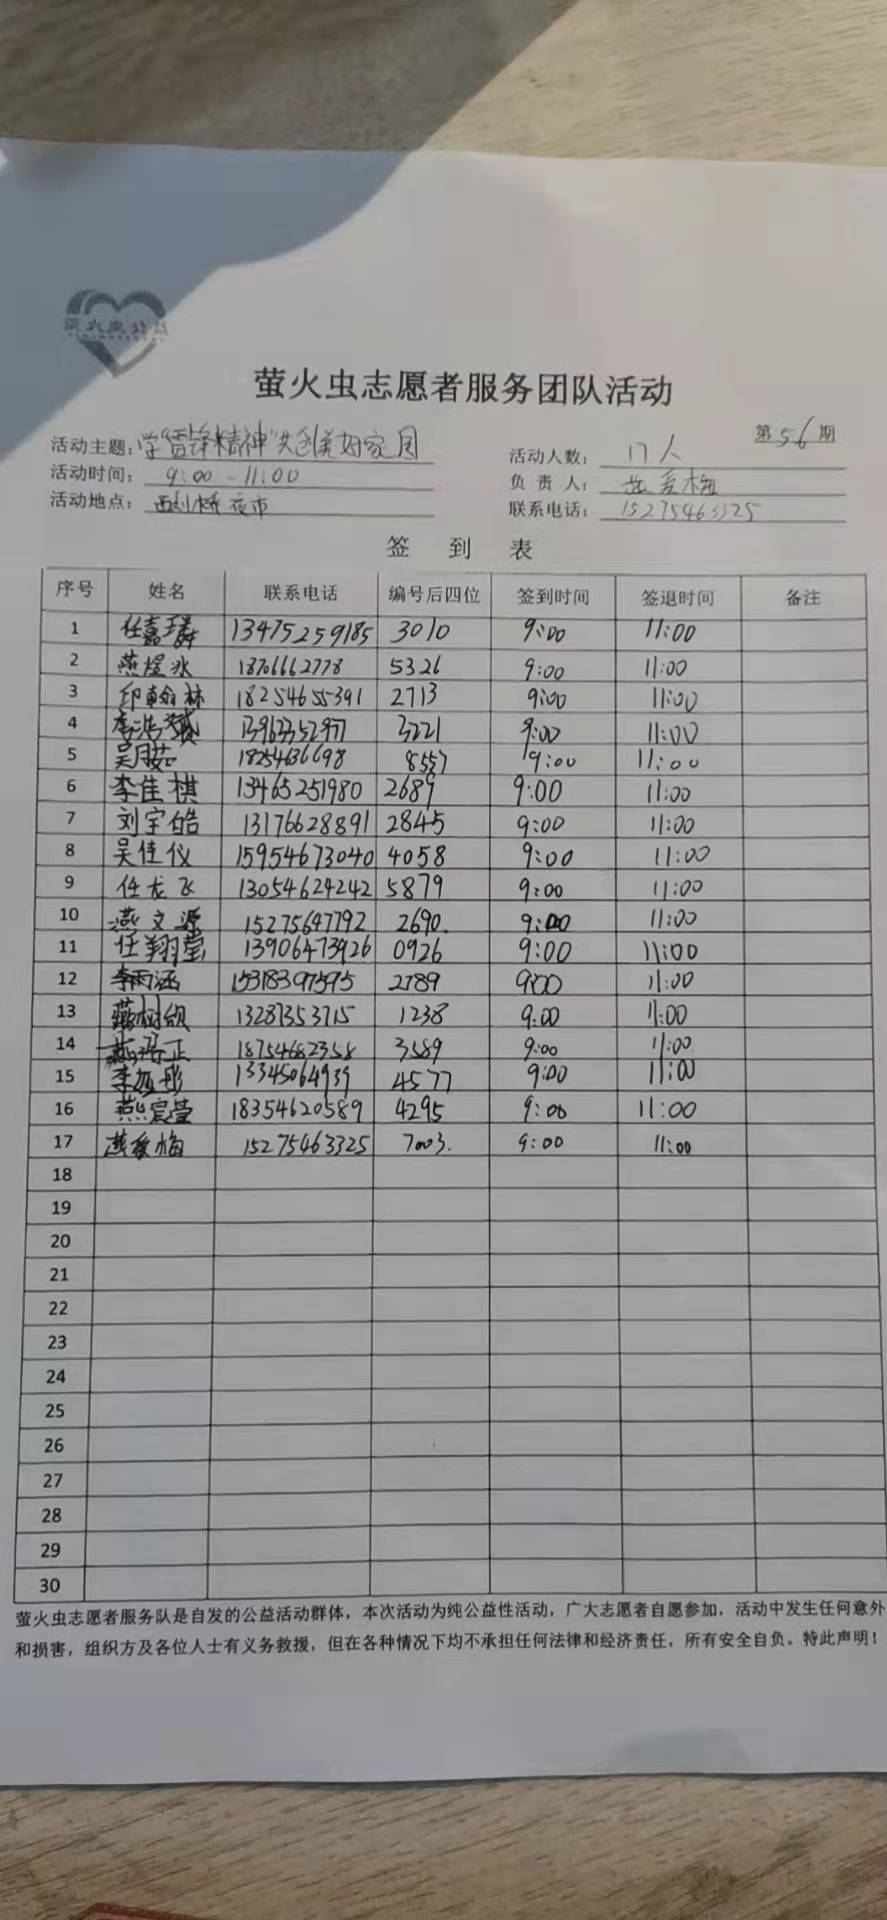 萤火虫志愿者服务团队活动
第56期
活动主题：学"雷锋精神"共创美好家园 活动人数：17人
活动时间：9:00-11:00 负责人：燕爱梅
活动地点：西刘桥夜市 联系电话：15275463325
签到表
序号 姓名 联系电话 编号后四位 签到时间 签退时间 备注
1 任嘉璘 13475259185 3010 9:00 11:00
2 燕煜冰 18706662778 5326 9:00 11:00
3 印翰林 18254655391 2713 9:00 11:00
4 李浩 13963352977 3221 9:00 11:00
5 吴月茹 18254636698 8557 9:00 11:00
6 李佳棋 13465251980 2689 9:00 11:00
7 刘宇皓 13176628891 2845 9:00 11:00
8 吴佳仪 15954673040 4058 9:00 11:00
9 任龙飞 13054624242 5879 9:00 11:00
10 燕文源 15275647792 2690. 9:00 11:00
11 任翔莹 13906473926 0926 9:00 11:00
12 李雨涵 15318397595 2789 9:00 11:00
13 燕树颀 13281353715 1238 9:00 11:00
14 燕浩正 18754682358 3589 9:00 11:00
15 李彤 13345064939 4577 9:00 11:00
16 燕宸莹 18354620589 4295 9:00 11:00
17 燕爱梅 15275463325 7003. 9:00 11:00
18
19
20
21
22
23
24
25
26
27
28
29
30
萤火虫志愿者服务队是自发的公益活动群体，本次活动为纯公益性活动，广大志愿者自愿参加，活动中发生任何意外
和损害，组织方及各位人士有义务救援，但在各种情况下均不承担任何法律和经济责任，所有安全自负。特此声明！